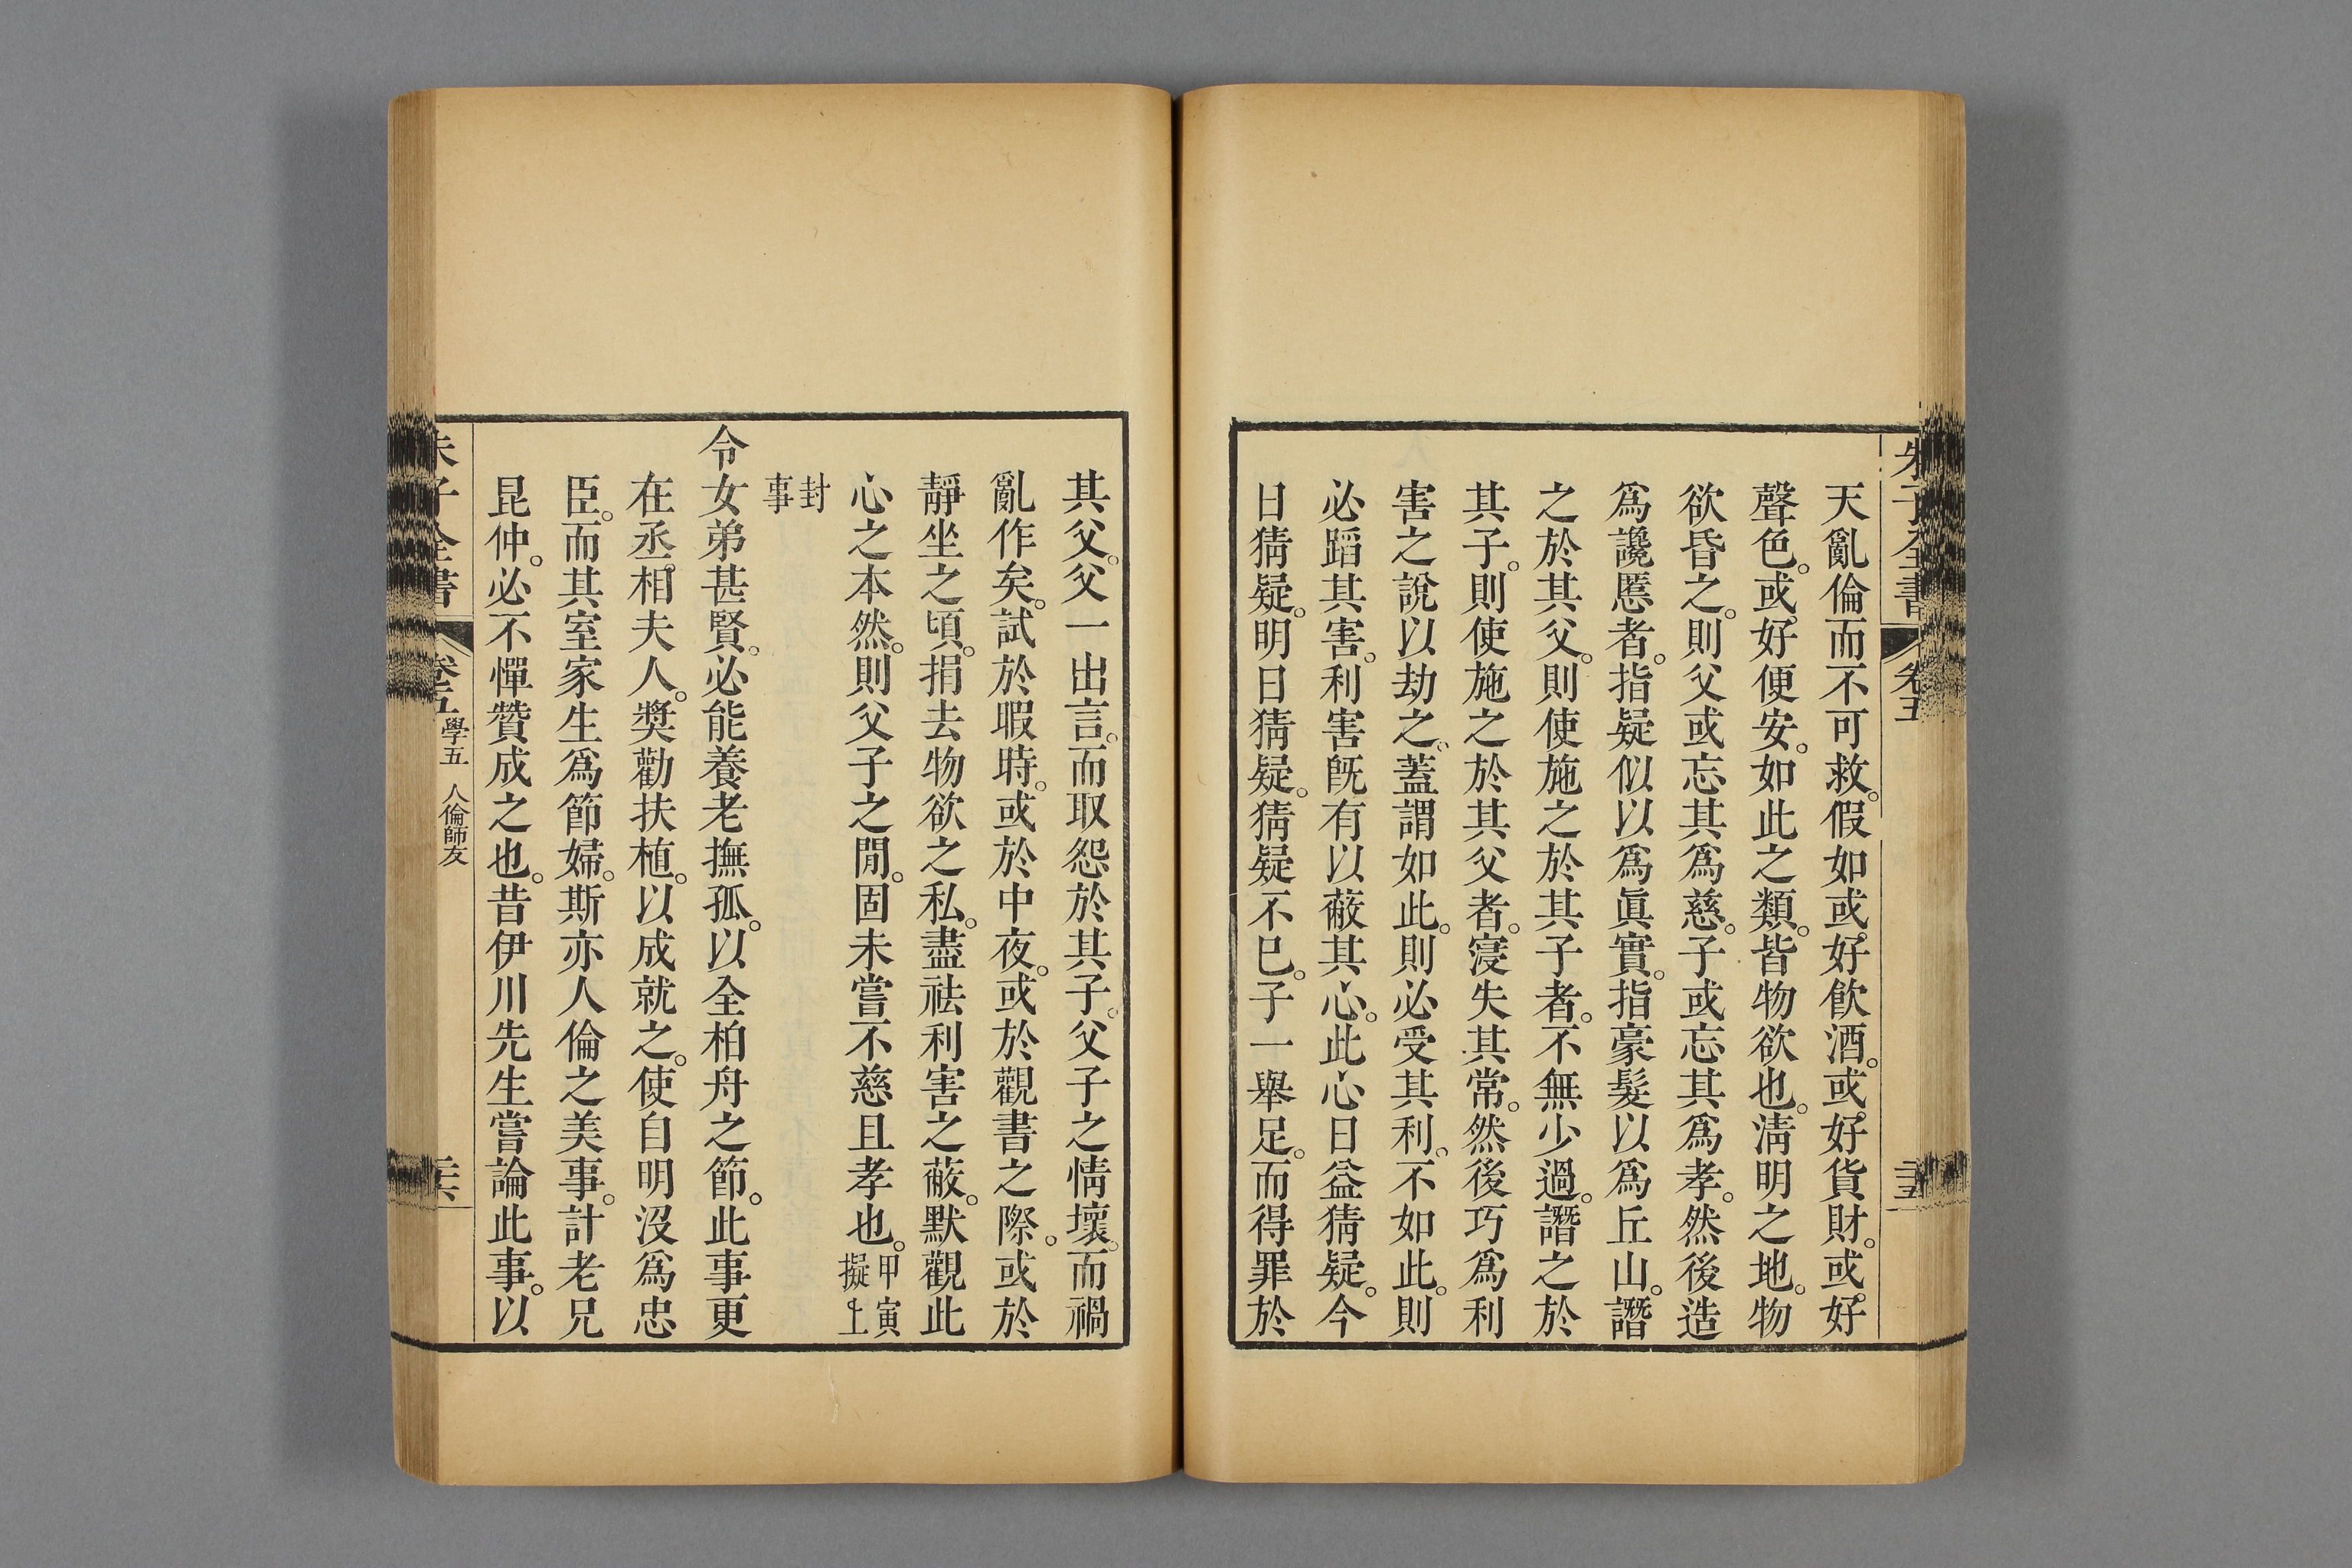 朱子全書 卷五 二十五
天亂倫而不可救。假如或好飲酒。或好貨財。或好
聲色。或好便安。如此之類。皆物欲也。淸明之地。物
欲昏之。則父或忘其爲慈。子或忘其爲孝。然後造
爲讒慝者。指疑似以爲眞實。指豪髮以爲丘山。譖
之於其父。則使施之於其子者。不無少過。譖之於
其子。則使施之於其父者。寖失其常。然後巧爲利
害之說以劫之。蓋謂如此。則必受其利。不如此。則
必蹈其害。利害旣有以蔽其心。此心日益猜疑。今
日猜疑。明日猜疑。猜疑不已。子一舉足。而得罪於
其父。父一出言。而取怨於其子。父子之情壞。而禍
亂作矣。試於暇時。或於中夜。或於觀書之際。或於
靜坐之頃。捐去物欲之私。盡祛利害之蔽。默觀此
心之本然。則父子之閒。固未嘗不慈且孝也。甲寅擬上
封事
令女弟甚賢。必能養老撫孤。以全柏舟之節。此事更
在丞相夫人。奬勸扶植。以成就之。使自明沒爲忠
臣。而其室家生爲節婦。斯亦人倫之美事。計老兄
昆仲。必不憚贊成之也。昔伊川先生嘗論此事。以
朱子全書 卷五 學五 人倫師友 二十六